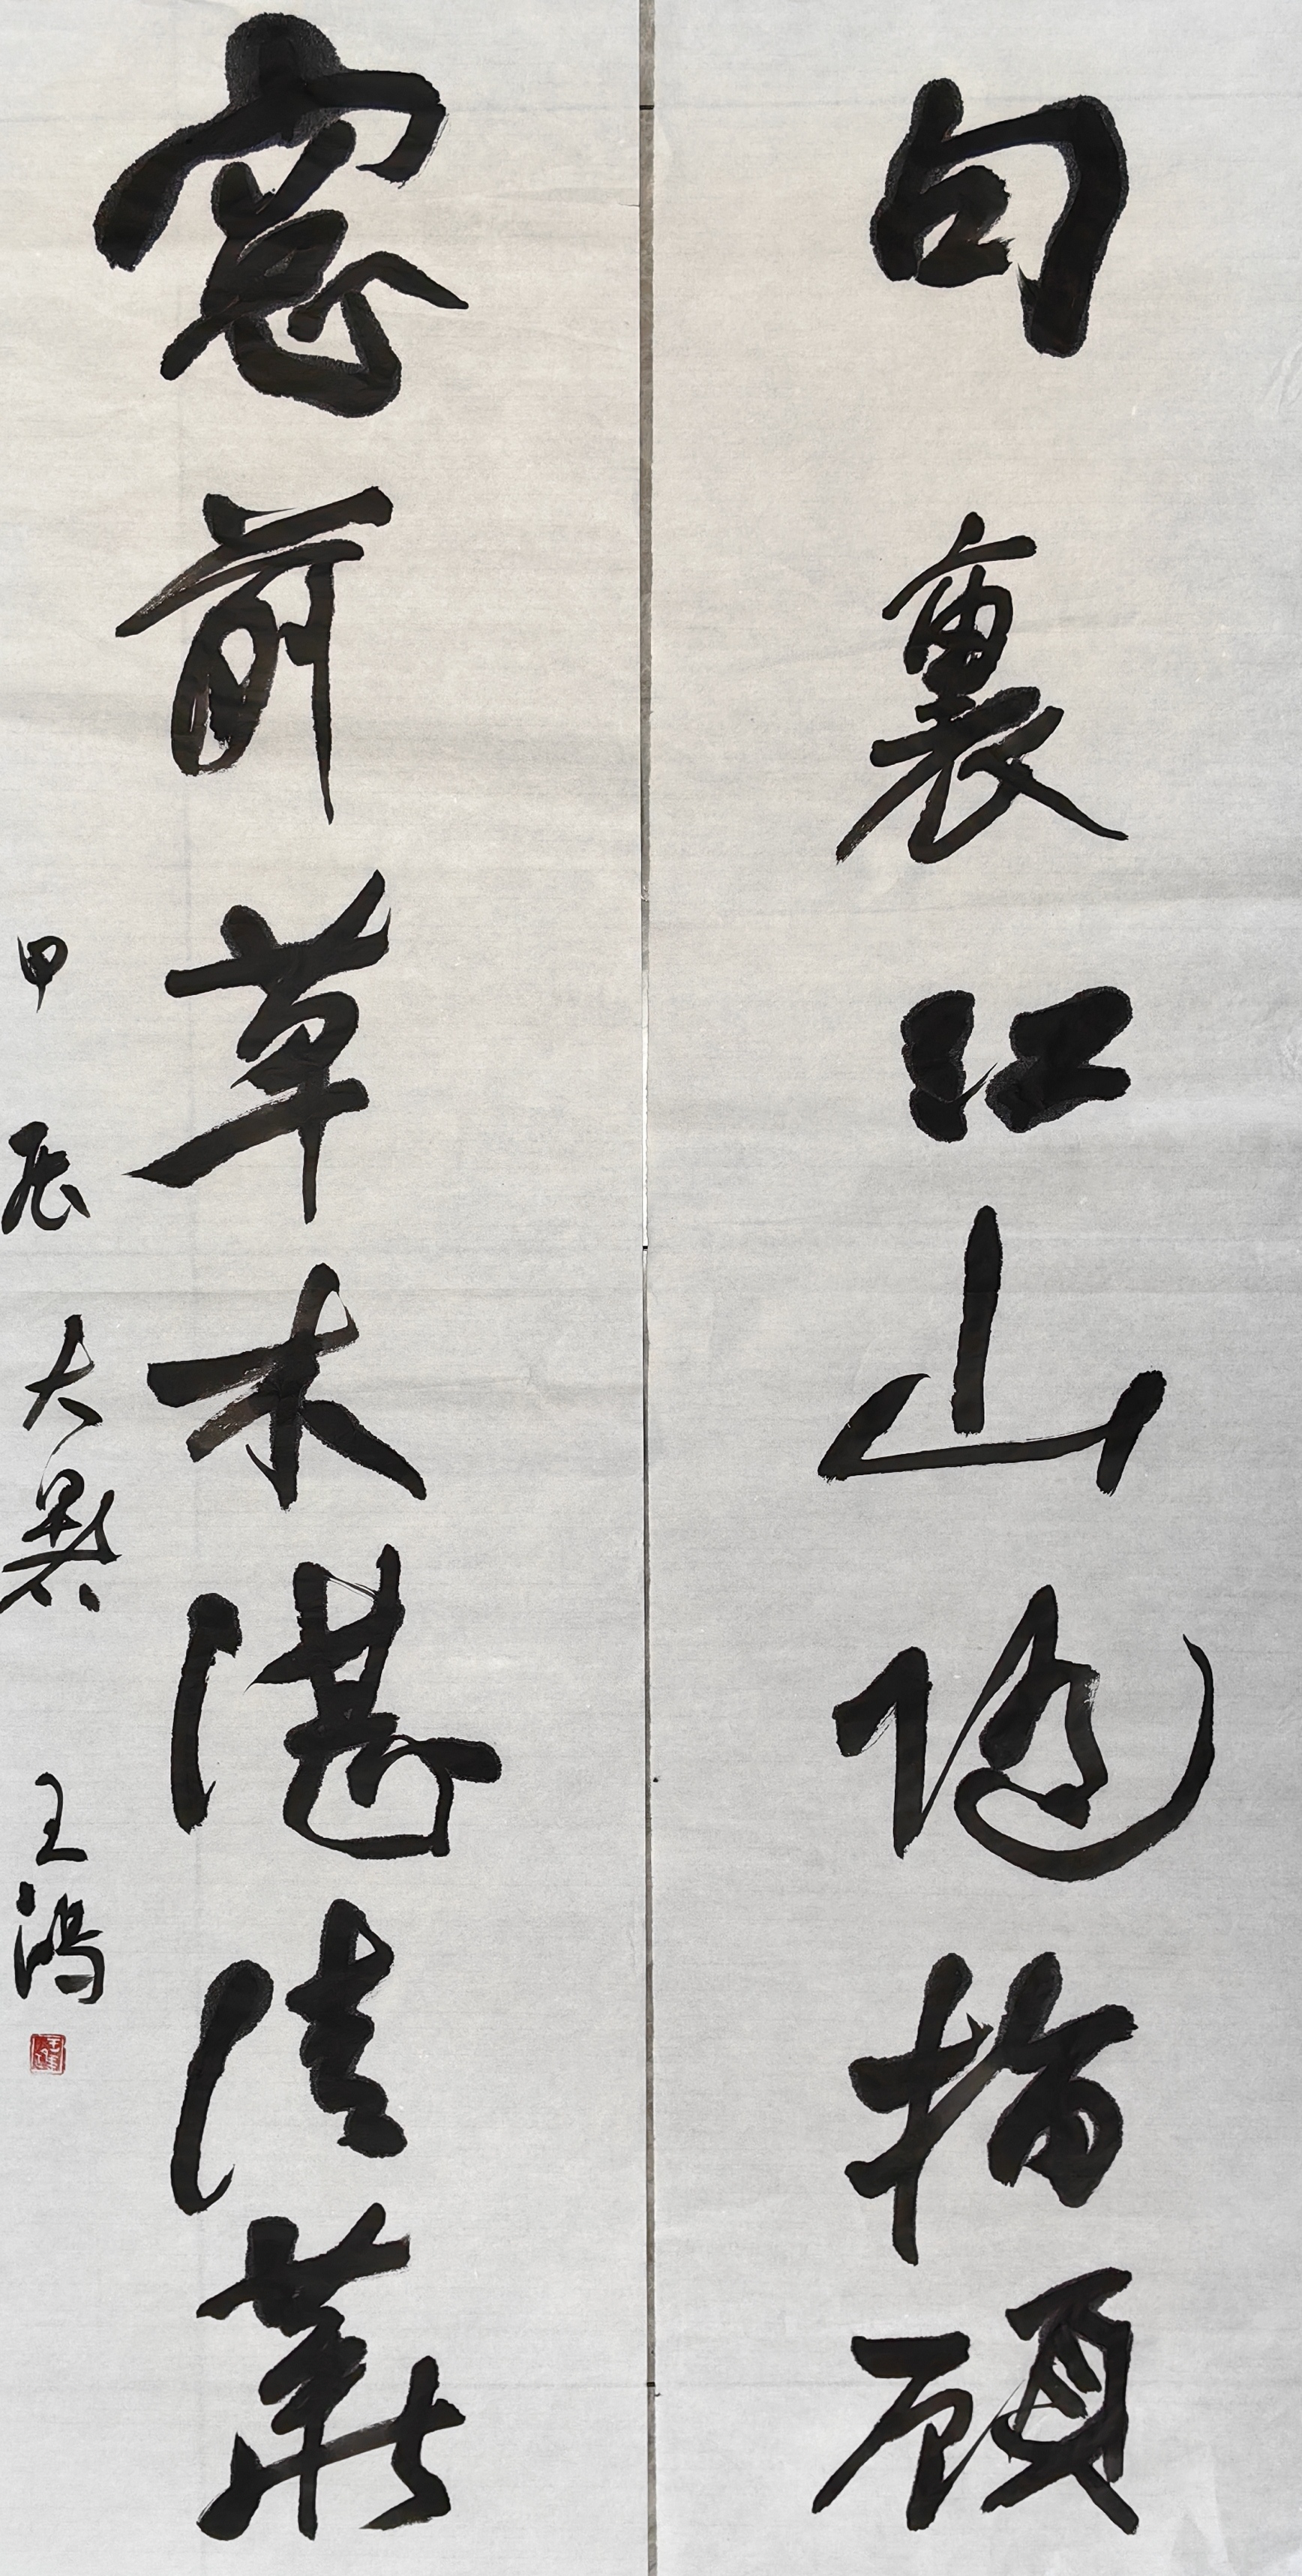 句裏江山隨指顧
窻前草木湛清華
甲辰大
王鴻